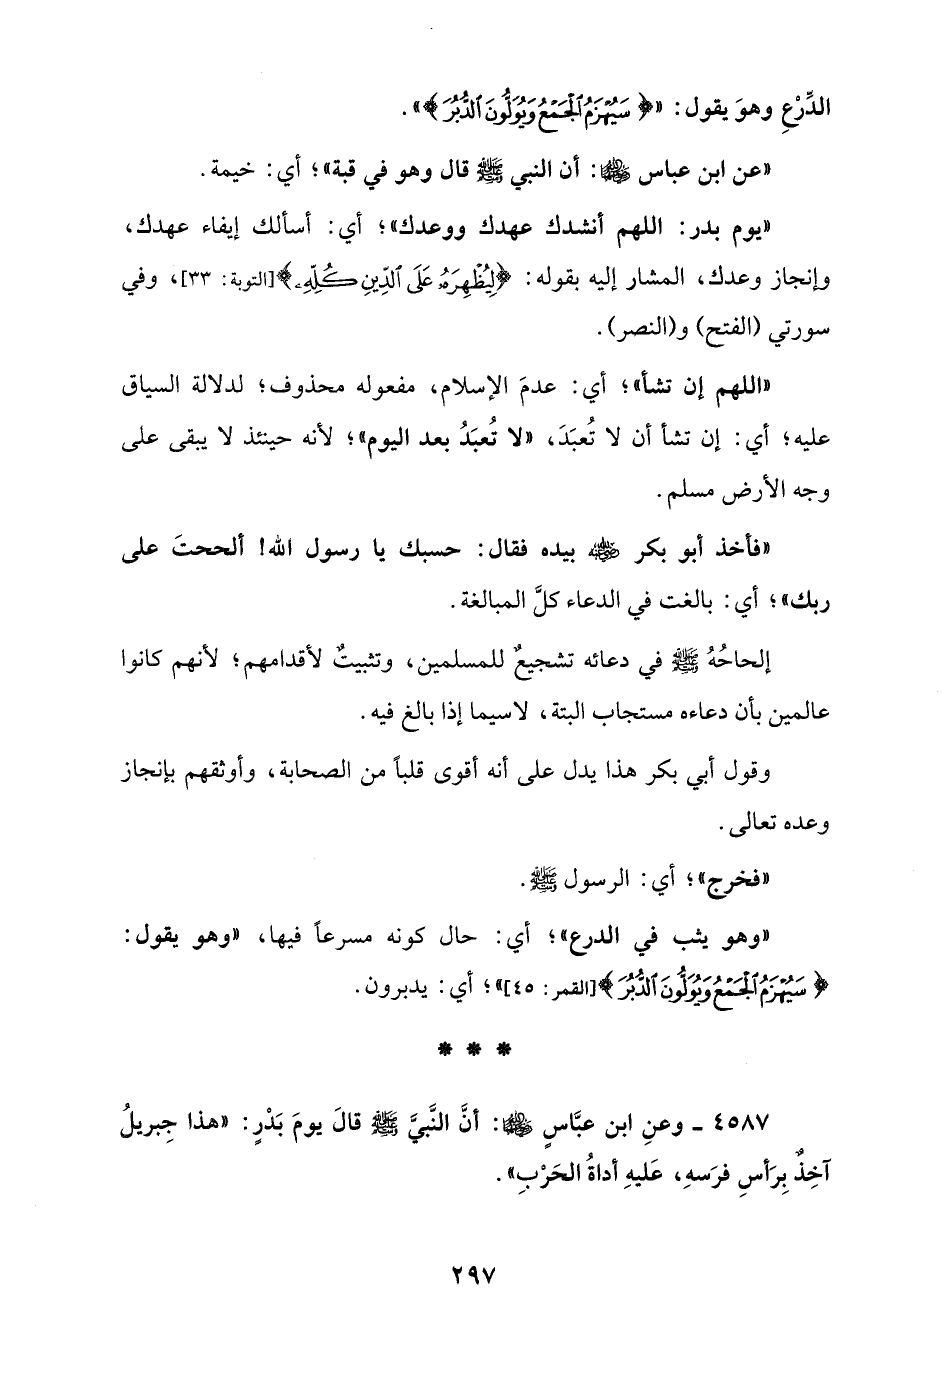 الدِّرْعِ وهوَ يقول: «﴿سَيُهْزَمُ ٱلْجَمْعُ وَيُوَلُّونَ ٱلدُّبُرَ﴾».
«عن ابن عباس ﵄: أن النبي ﷺ قال وهو في قبة»؛ أي: خيمة.
«يوم بدر: اللهم أنشدك عهدك ووعدك»؛ أي: أسألك إيفاء عهدك،
وإنجاز وعدك، المشار إليه بقوله: ﴿لِيُظْهِرَهُۥ عَلَى ٱلدِّينِ كُلِّهِۦ﴾[التوبة: ٣٣]، وفي
سورتي (الفتح) و(النصر).
«اللهم إن تشأ»؛ أي: عدمَ الإسلام، مفعوله محذوف؛ لدلالة السياق
عليه؛ أي: إن تشأ أن لا تُعبَدَ، «لا تُعبَدُ بعد اليوم»؛ لأنه حينئذ لا يبقى على
وجه الأرض مسلم.
«فأخذ أبو بكر ﵁ بيده فقال: حسبك يا رسول الله! ألححتَ على
ربك»؛ أي: بالغت في الدعاء كلَّ المبالغة.
إلحاحُهُ ﷺ في دعائه تشجيعٌ للمسلمين، وتثبيتٌ لأقدامهم؛ لأنهم كانوا
عالمين بأن دعاءه مستجاب البتة، لاسيما إذا بالغ فيه.
وقول أبي بكر هذا يدل على أنه أقوى قلباً من الصحابة، وأوثقهم بإنجاز
وعده تعالى.
«فخرج»؛ أي: الرسول ﷺ.
«وهو يثب في الدرع»؛ أي: حال كونه مسرعاً فيها، «وهو يقول:
﴿سَيُهْزَمُ ٱلْجَمْعُ وَيُوَلُّونَ ٱلدُّبُرَ﴾[القمر: ٤٥]»؛ أي: يدبرون.
* * *
٤٥٨٧ - وعنِ ابن عبَّاسٍ ﵄: أنَّ النَّبيَّ ﷺ قالَ يومَ بَدْرٍ: «هذا جِبريلُ
آخِذٌ بِرَأسِ فرَسهِ، عَليهِ أداةُ الحَرْبِ».
٢٩٧